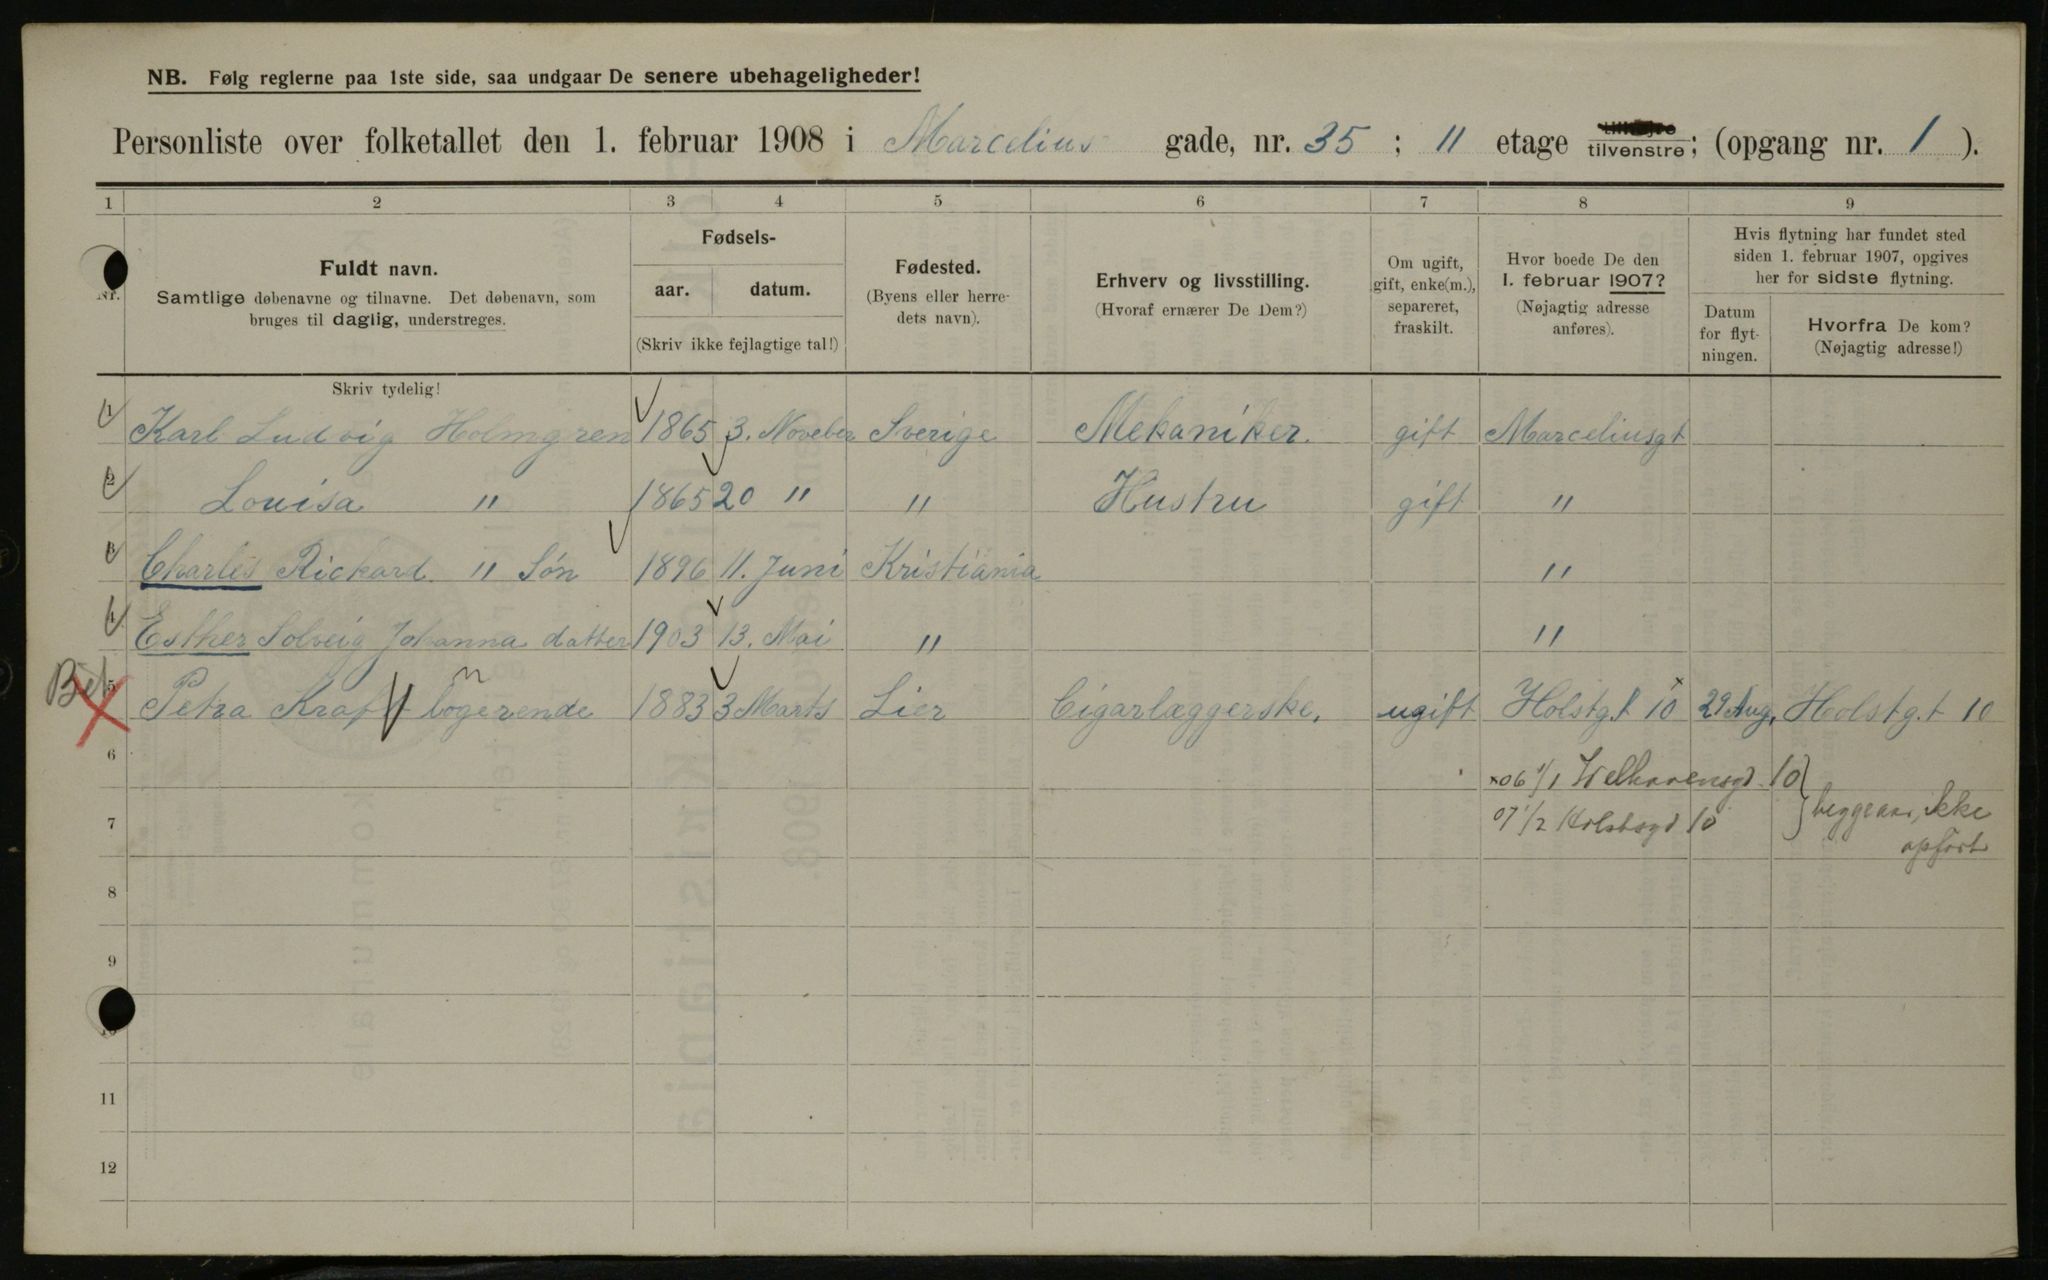 NB. Følg reglerne paa 1ste side, saa undgaar De senere ubehageligheder!
Personliste over folketallet den 1. februar 1908 i Marcelius gade, nr. 35 ; 11 etage tilvenstre; (opgang nr. 1 ).
1 2 3 4 5 6 7 8 9
Nr.
Fuldt navn.
Samtlige døbenavne og tilnavne. Det døbenavn, som
bruges til daglig, understreges.
Fødsels-
aar. datum.
(Skriv ikke fejlagtige tal!)
Fødested.
(Byens eller herre-
dets navn).
Erhverv og livsstilling.
(Hvoraf ernærer De Dem?)
Om ugift,
gift, enke(m.),
separeret,
fraskilt.
Hvor boede De den
1. februar 1907?
(Nøjagtig adresse
anføres).
Hvis flytning har fundet sted
siden 1. februar 1907, opgives
her for sidste flytning.
Datum
for flyt-
ningen.
Hvorfra De kom?
(Nøjagtig adresse!)
Skriv tydelig!
1 Karl Ludvig Holmgren 1865 3. Noveber Sverige Mekaniker. gift Marceliusgt
2 Louisa " 1865 20 " " Hustru gift "
3 Charles Rickard. " Søn 1896 11. Juni Kristiania "
4 Esther Solveig Johanna datter 1903 13. Mai " "
Bet 5 Petra Kraft logerende 1883 3 Marts Lier Cigarlæggerske, ugift Holstg.t 10 29 Aug, Holstg.t 10
6 x06 1/1 Welhavensgd 10
7 07 1/2 Holstsgd 10 } beggeaar, ikke
opført
8
9
10
11
12